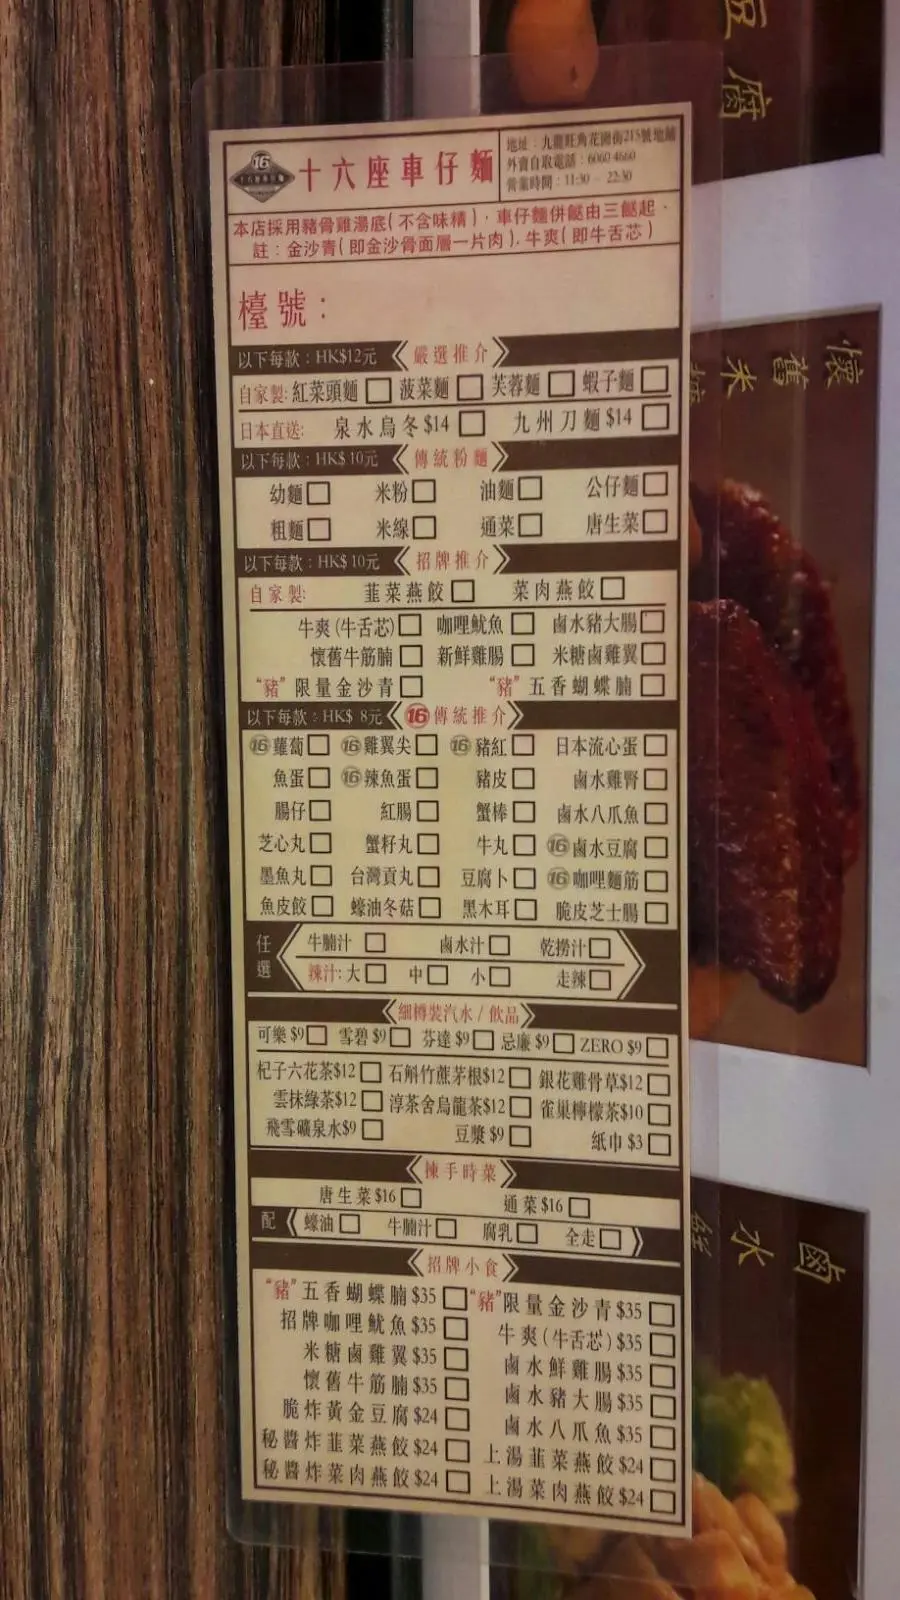 豆腐
16 十六座車仔麵
十六座車仔麵
地址：九龍旺角花園街215號地舖
外賣自取電話：6060 4660
營業時間：11:30 - 22:30
本店採用豬骨雞湯底(不含味精)，車仔麵併餸由三餸起。
註：金沙青(即金沙骨面層一片肉)，牛爽(即牛舌芯)
檯號：
以下每款：HK$12元 嚴選推介
自家製: 紅菜頭麵 □ 菠菜麵 □ 芙蓉麵 □ 蝦子麵 □
日本直送: 泉水烏冬 $14 □ 九州刀麵 $14 □
以下每款：HK$10元 傳統粉麵
幼麵 □ 米粉 □ 油麵 □ 公仔麵 □
粗麵 □ 米線 □ 通菜 □ 唐生菜 □
以下每款：HK$10元 招牌推介
自家製: 韮菜燕餃 □ 菜肉燕餃 □
牛爽(牛舌芯) □ 咖哩魷魚 □ 鹵水豬大腸 □
懷舊牛筋腩 □ 新鮮雞腸 □ 米糖鹵雞翼 □
“豬”限量金沙青 □ “豬”五香蝴蝶腩 □
以下每款：HK$ 8元 16 傳統推介
16 蘿蔔 □ 16 雞翼尖 □ 16 豬紅 □ 日本流心蛋 □
魚蛋 □ 16 辣魚蛋 □ 豬皮 □ 鹵水雞腎 □
腸仔 □ 紅腸 □ 蟹棒 □ 鹵水八爪魚 □
芝心丸 □ 蟹籽丸 □ 牛丸 □ 16 鹵水豆腐 □
墨魚丸 □ 台灣貢丸 □ 豆腐卜 □ 16 咖哩麵筋 □
魚皮餃 □ 蠔油冬菇 □ 黑木耳 □ 脆皮芝士腸 □
任選 牛腩汁 □ 鹵水汁 □ 乾撈汁 □
辣汁: 大 □ 中 □ 小 □ 走辣 □
細樽裝汽水 / 飲品
可樂 $9 □ 雪碧 $9 □ 芬達 $9 □ 忌廉 $9 □ ZERO $9 □
杞子六花茶$12 □ 石斛竹蔗茅根$12 □ 銀花雞骨草$12 □
雲抹綠茶$12 □ 淳茶舍烏龍茶$12 □ 雀巢檸檬茶$10 □
飛雪礦泉水$9 □ 豆漿 $9 □ 紙巾 $3 □
揀手時菜
唐生菜 $16 □ 通菜 $16 □
配 蠔油 □ 牛腩汁 □ 腐乳 □ 全走 □
招牌小食
“豬”五香蝴蝶腩 $35 □ “豬”限量金沙青 $35 □
招牌咖哩魷魚 $35 □ 牛爽(牛舌芯) $35 □
米糖鹵雞翼 $35 □ 鹵水鮮雞腸 $35 □
懷舊牛筋腩 $35 □ 鹵水豬大腸 $35 □
脆炸黃金豆腐 $24 □ 鹵水八爪魚 $35 □
秘醬炸韮菜燕餃 $24 □ 上湯韮菜燕餃 $24 □
秘醬炸菜肉燕餃 $24 □ 上湯菜肉燕餃 $24 □
懷舊米
鹵水